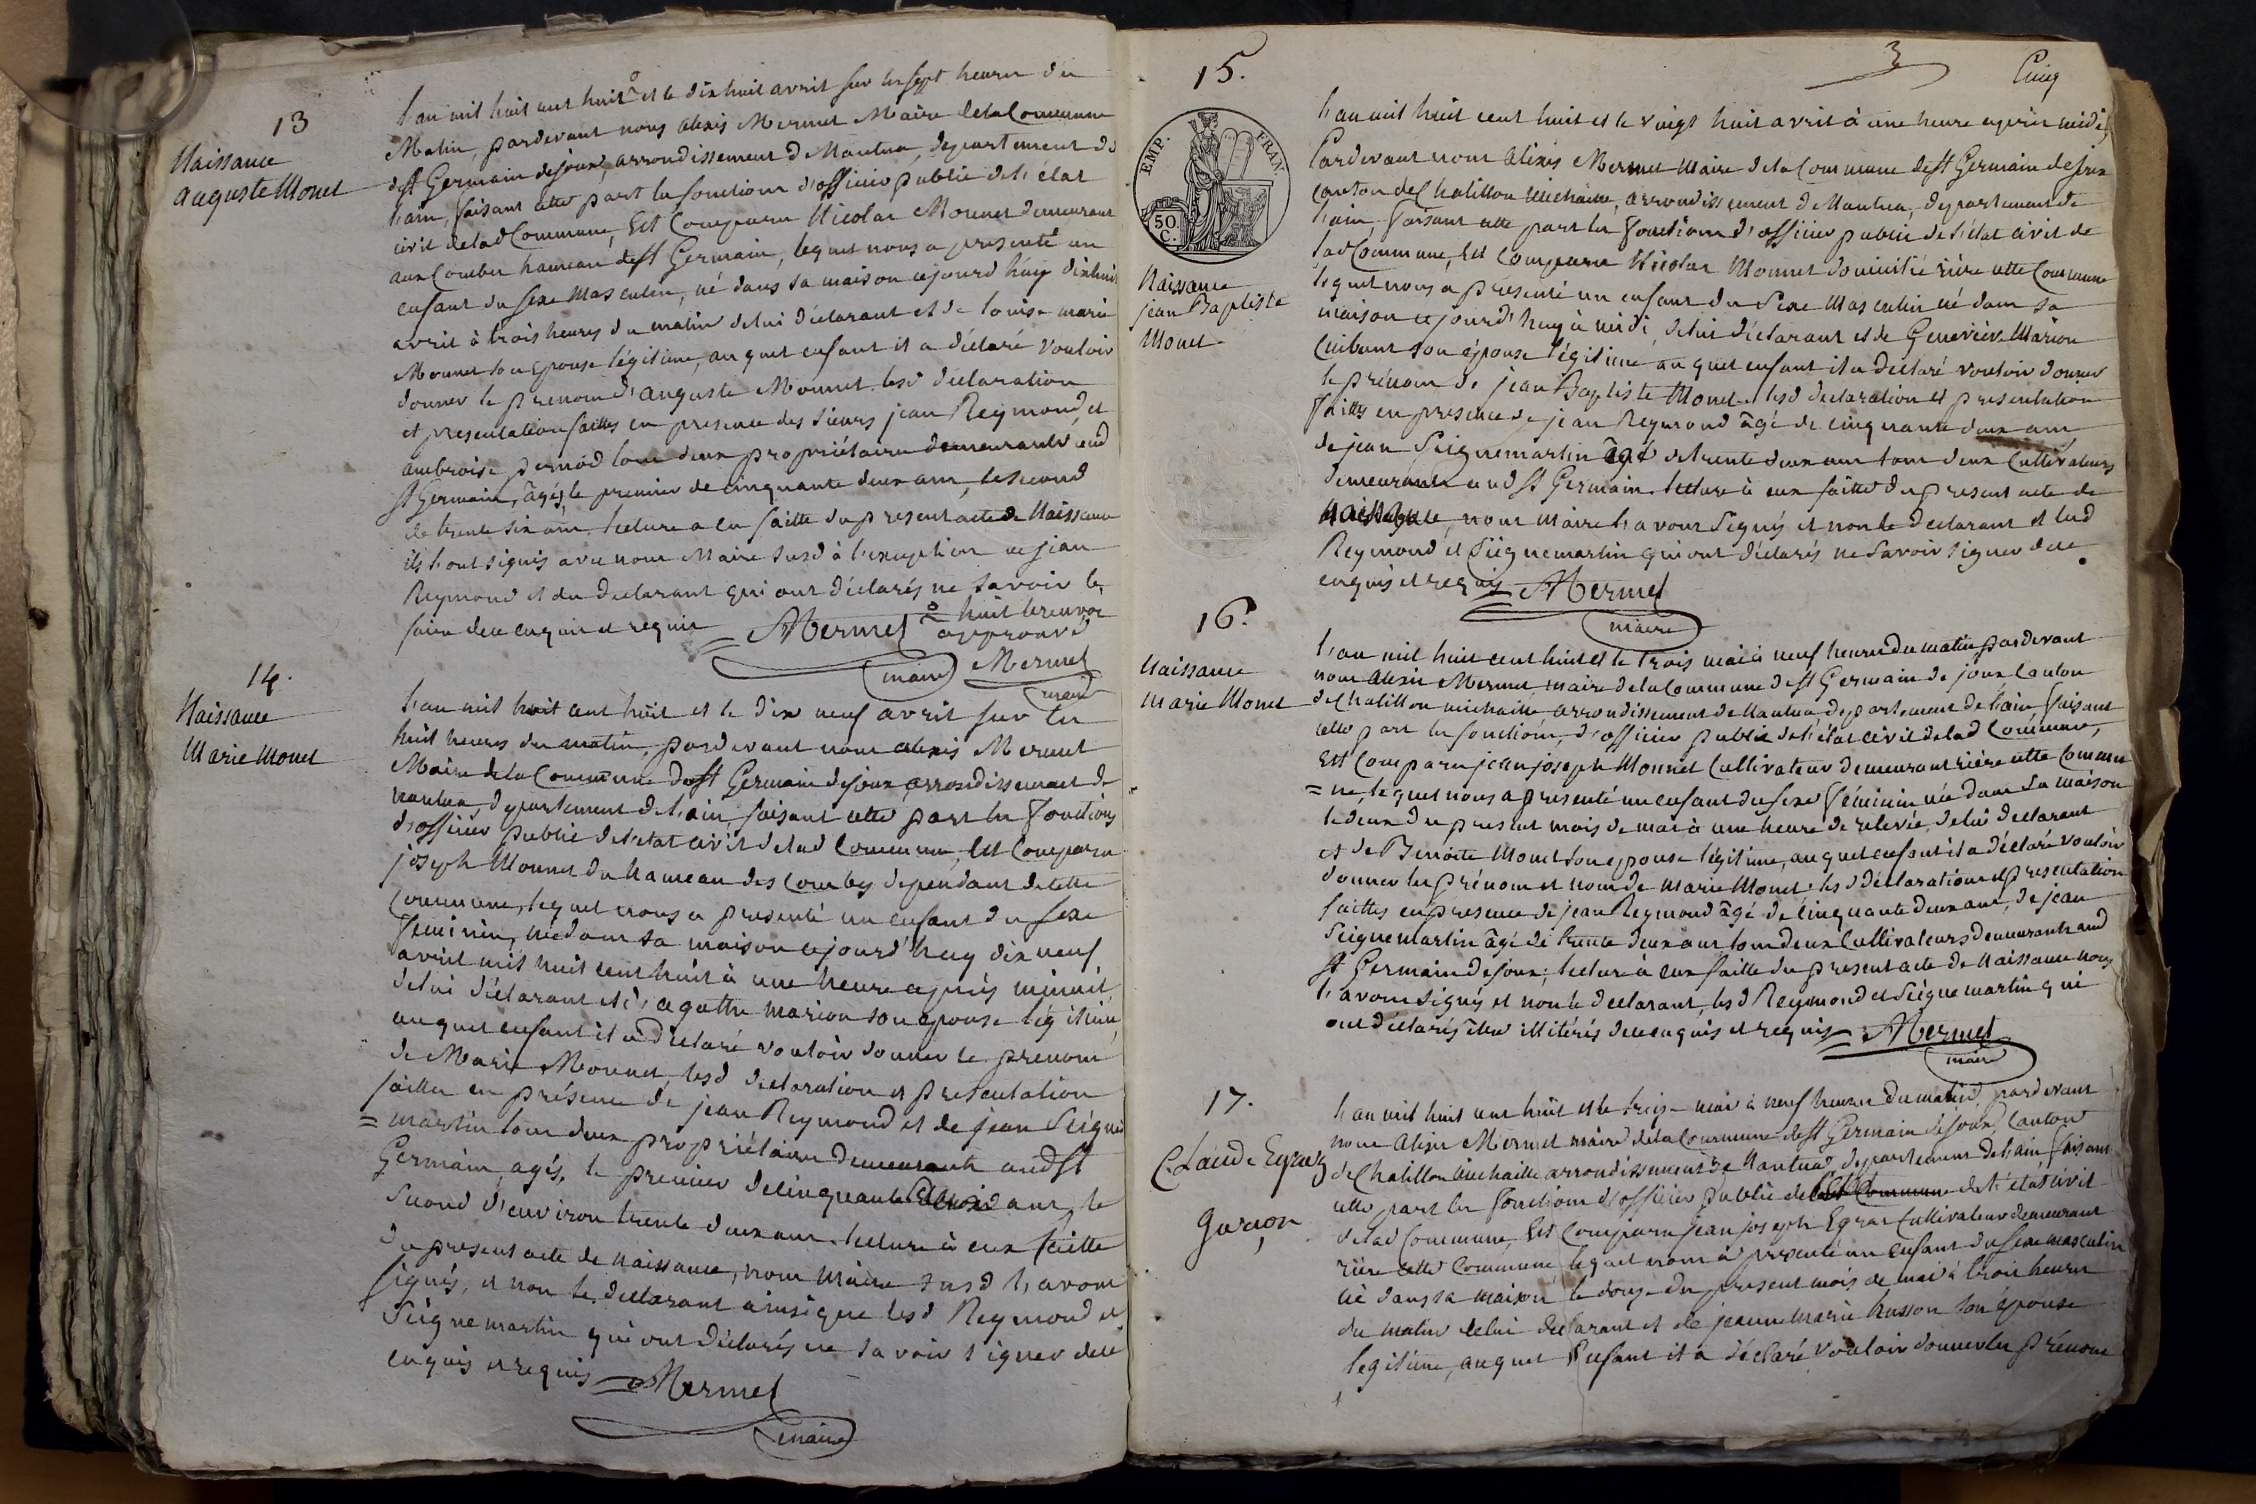 13
Naissance
auguste Monet
L'an mil huit cent huit et le dix huit avril sur les sept heures du
Matin, pardevant nous alexis Mermet Maire de la Commune
de St Germain de joux, arrondissement de Nantua, departement de
l'ain, faisant cette part les fonctions d'officier public de l'état
civil de lad Commune, Est Comparu Nicolas Monnet demeurant
aux Combes hameau de St Germain, lequel nous a presenté un
enfant du sexe Masculin, né dans sa maison cejourd'huy dixhuit
avril à trois heures du matin de lui déclarant et de louise marie
Monnet son epouse légitime, auquel enfant il a déclaré vouloir
donner le prenom d'auguste Monnet. lesd déclaration
et presentation faittes en presence des sieurs jean Reymond et
ambroise pernod tous deux propriétaires demeurants aud
St Germain, âgés, le premier de cinquante deux ans, le second
de trente six ans. lecture a eux faitte du present acte de Naissance
ils l'ont signés avec nous Maire susd à l'exception de jean
Reymond et du declarant qui ont déclarés ne savoir le
faire de ce enquis et requis Mermet huit le renvoi
approuvé
maire Mermet
maire
14.
Naissance
Marie Monet
L'an mil huit cent huit et le dix neuf avril sur les
huit heures du matin, pardevant nous alexis Mermet
Maire de la Commune de St Germain de joux arrondissement de
nantua, departement de l'ain, faisant cette part les fonctions
d'officier public de l'etat civil de lad Commune, Est Comparu
joseph Monnet du hameau des Combes dependant de cette
Commune, lequel nous a presenté un enfant du sexe
feminin, né dans sa maison cejourd'huy dix neuf
avril mil huit cent huit à une heure après minuit,
de lui déclarant et d'agathe marion son epouse légitime,
auquel enfant il a déclaré vouloir donner le prenom
de Marie Monnet, lesd declaration et presentation
faittes en présence de jean Reymond et de jean Seigne
= martin tous deux propriétaires demeurants aud St
Germain, agés, le premier de cinquante deux ans, le
second d'environ trente deux ans. lecture à eux faitte
du present acte de naissance, nous Maire susd l'avons
signés, et non le declarant ainsi que lesd Reymond et
Seignemartin qui ont déclarés ne savoir signer de ce
enquis et requis Mermet
maire
3
Cinq
15.
EMP. FRAN.
50
C.
Naissance
jean Baptiste
Monet
L'an mil huit cent huit et le vingt huit avril à une heure après midi,
Pardevant nous Alexis Mermet Maire de la Commune de St Germain de joux
canton de Chatillon Michaille, arrondissement de Nantua, departement de
l'ain, faisant cette part les fonctions d'officier public de l'état civil de
lad Commune, Est Comparu Nicolas Monnet domicilié rière cette Commune
lequel nous a présenté un enfant du Sexe Masculin né dans sa
maison cejourd'huy à midi, de lui déclarant et de Geneviève Marion
Cuibant son épouse légitime auquel enfant il a déclaré vouloir donner
le prénom de jean Baptiste Monet. lesd declaration et presentation
faittes en presence de jean Reymond âgé de cinquante deux ans
de jean Seignemartin âgé de trente deux ans tous deux Cultivateurs
demeurants aud St Germain. lecture à eux faitte du present acte de
naissance, nous Maire l'avons Signés et non le declarant et lesd
Reymond et Seignemartin qui ont déclarés ne Savoir signer de ce
enquis et requis Mermet
maire
16.
Naissance
Marie Monet
L'an mil huit cent huit et le trois mai à neuf heures du matin pardevant
nous alexis Mermet maire de la Commune de St Germain de joux Canton
de Chatillon michaille arrondissement de Nantua, departement de l'ain faisant
cette part les fonctions, d'officier public de l'état civil de lad Commune,
Est Comparu jean joseph Monnet Cultivateur demeurant rière cette Commu
= ne, lequel nous a presenté un enfant du sexe féminin née dans sa maison
le deux du present mois de mai à une heure de relevée, de lui declarant
et de Benoite Monet son epouse légitime, auquel enfant il a déclaré vouloir
donner les prénom et nom de Marie Monet. lesd déclaration et presentation
faittes en presence de jean Reymond âgé de cinquante deux ans, de jean
Seignemartin âgé de trente deux ans tous deux Cultivateurs demeurants aud
St Germain de joux; lecture à eux faitte du present acte de Naissance nous
l'avons signés et non le declarant, lesd Reymond et Seignemartin qui
ont déclarés être illitérés de ce enquis et requis Mermet
maire
17.
Claude Egraz
Garçon
L'an mil huit cent huit et le treize mai à neuf heures du matin, pardevant
nous alexis Mermet maire de la Commune de St Germain de joux, Canton
de Chatillon Michaille arrondissement de Nantua, departement de l'ain faisant
cette part les fonctions d'officier public de Commune de l'état civil
de lad Commune, Est Comparu jean joseph Egraz Cultivateur demeurant
rière cette Commune lequel nous à presenté un enfant du sexe masculin
né dans sa maison le douze du present mois de mai à trois heures
du matin de lui declarant et de jeanne marie husson son épouse
legitime, auquel Enfant il a déclaré vouloir donner les prénom